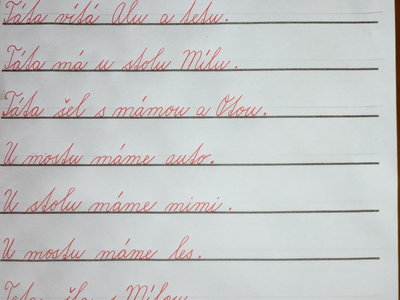 Táta vítá Alu a tetu.
Táta má u stolu Mílu.
Táta šel s mámou a Otou.
U mostu máme auto.
U stolu máme mimi.
U mostu máme les.
Teta šla s Mílou